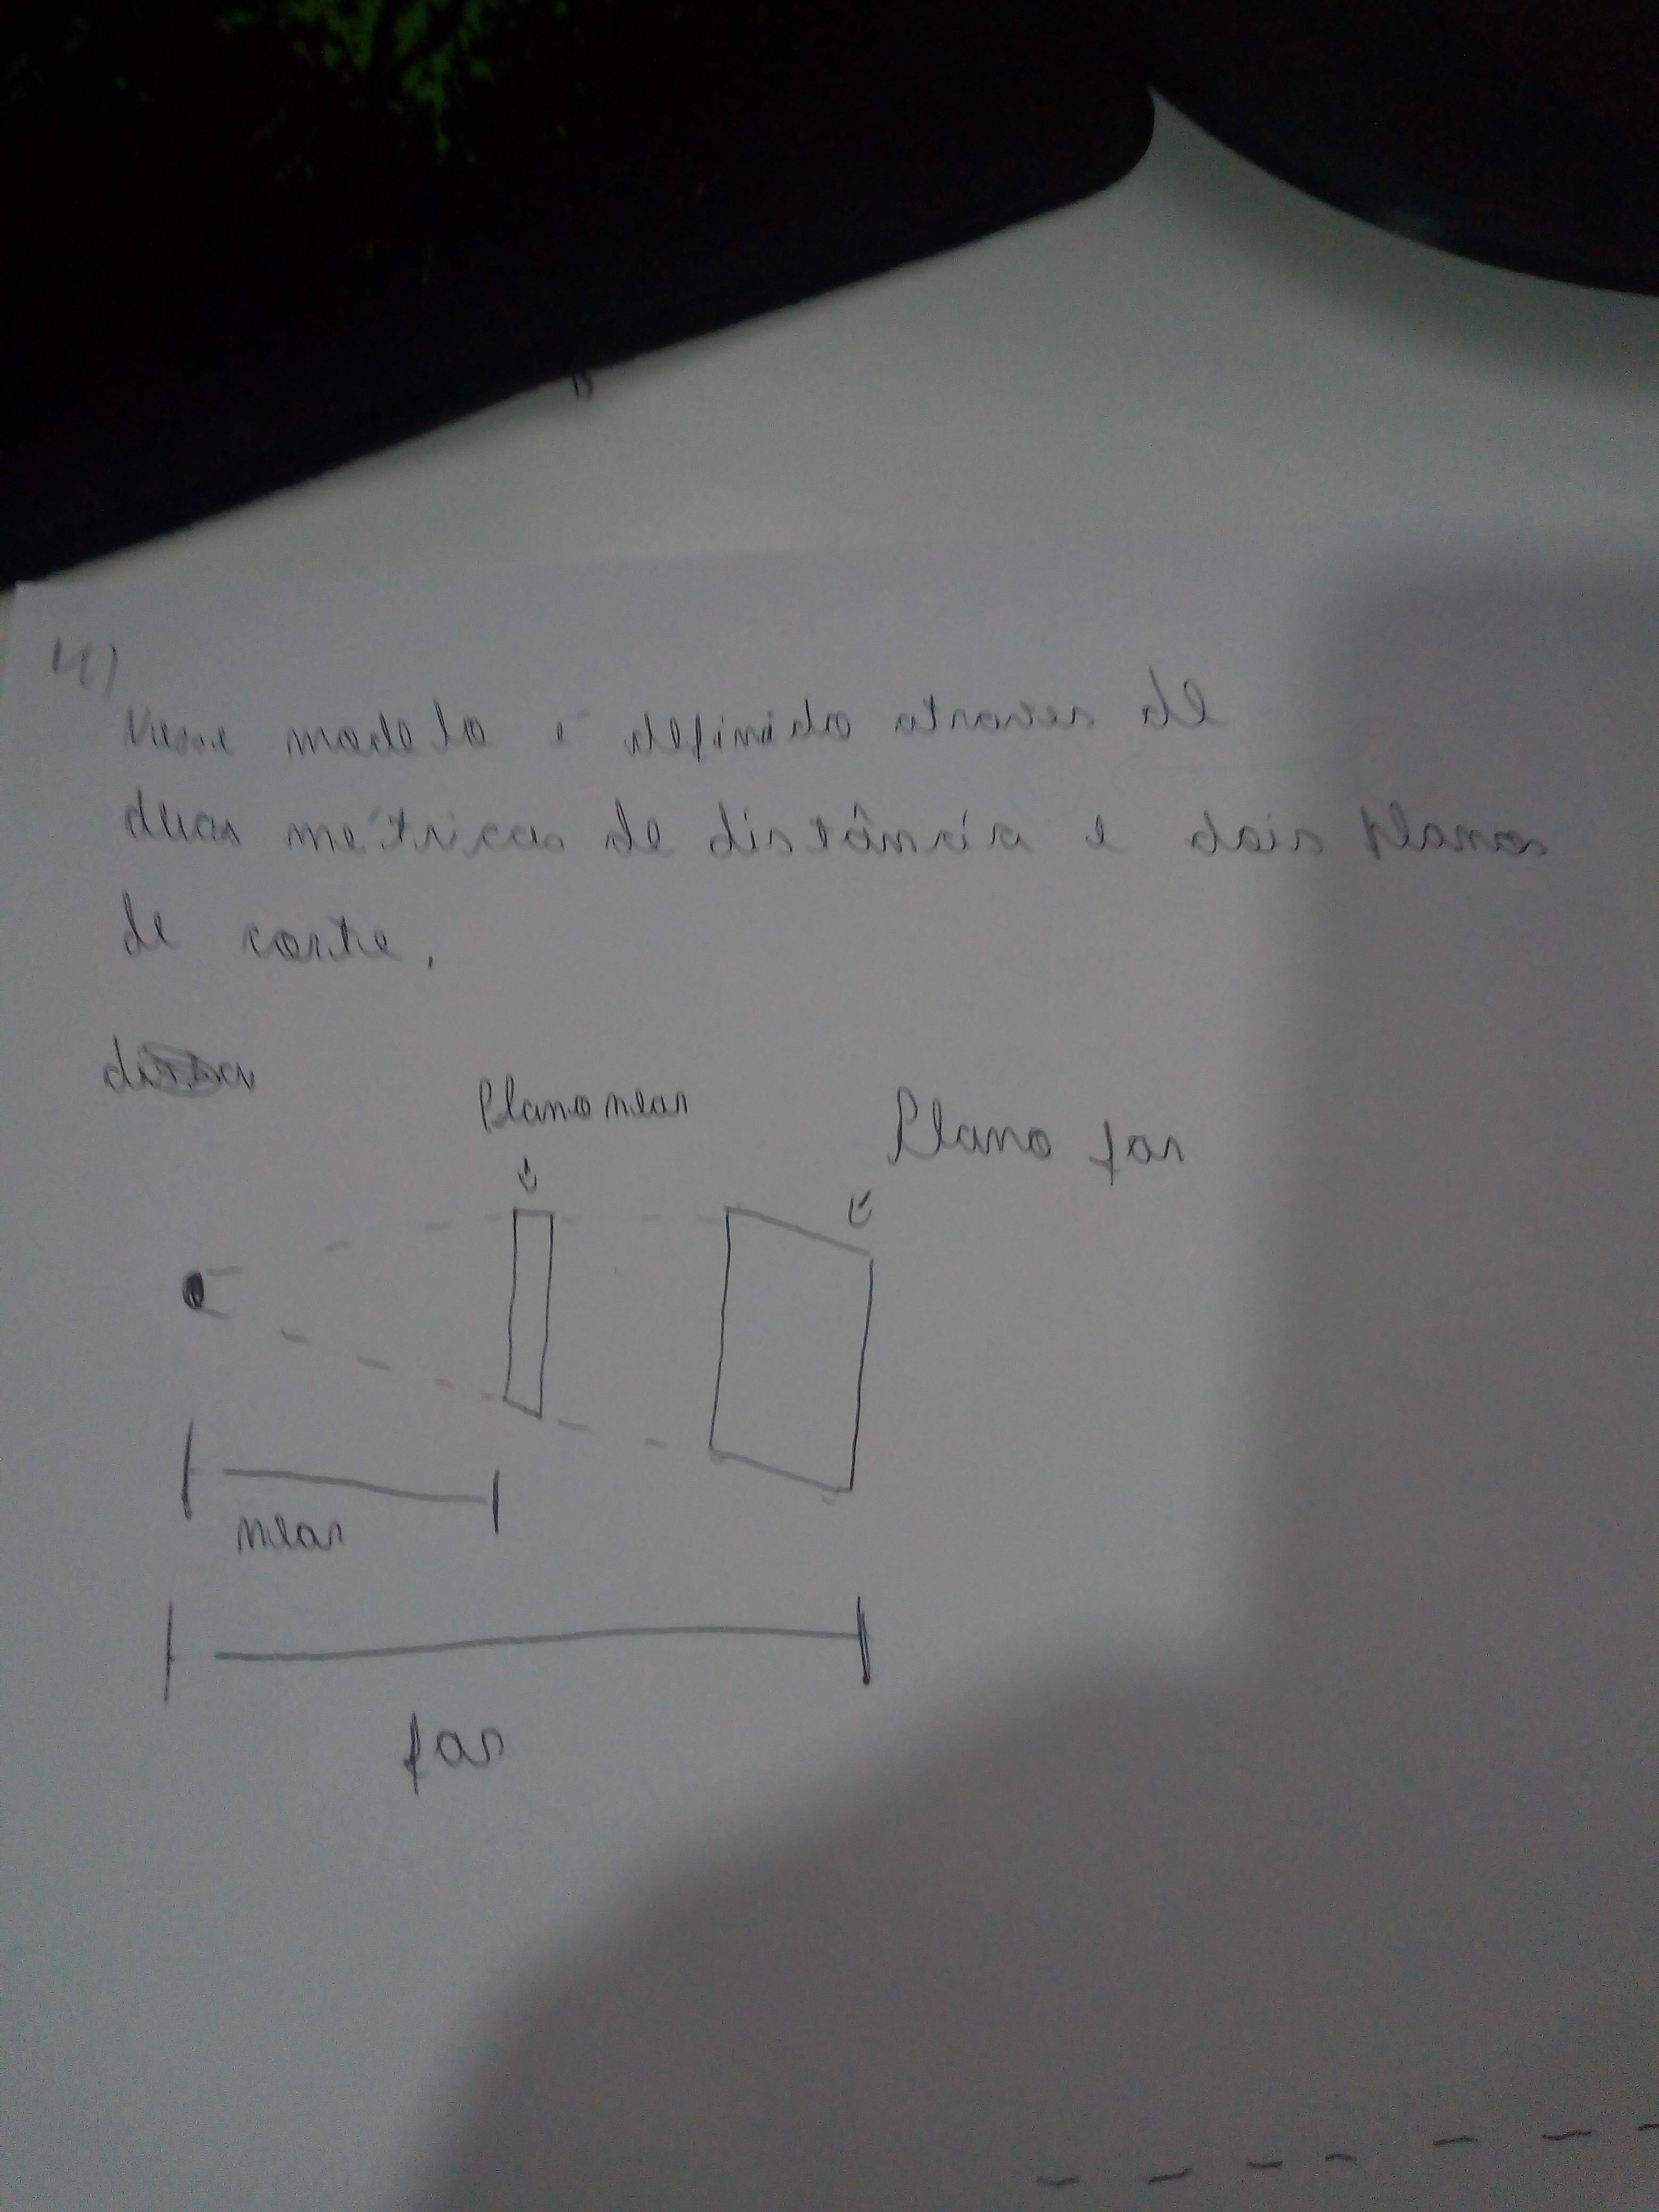 4)
Nesse modelo é definido atraves de
duas métricas de distância e dois planos
de corte.
Plano near
Plano far
near
far